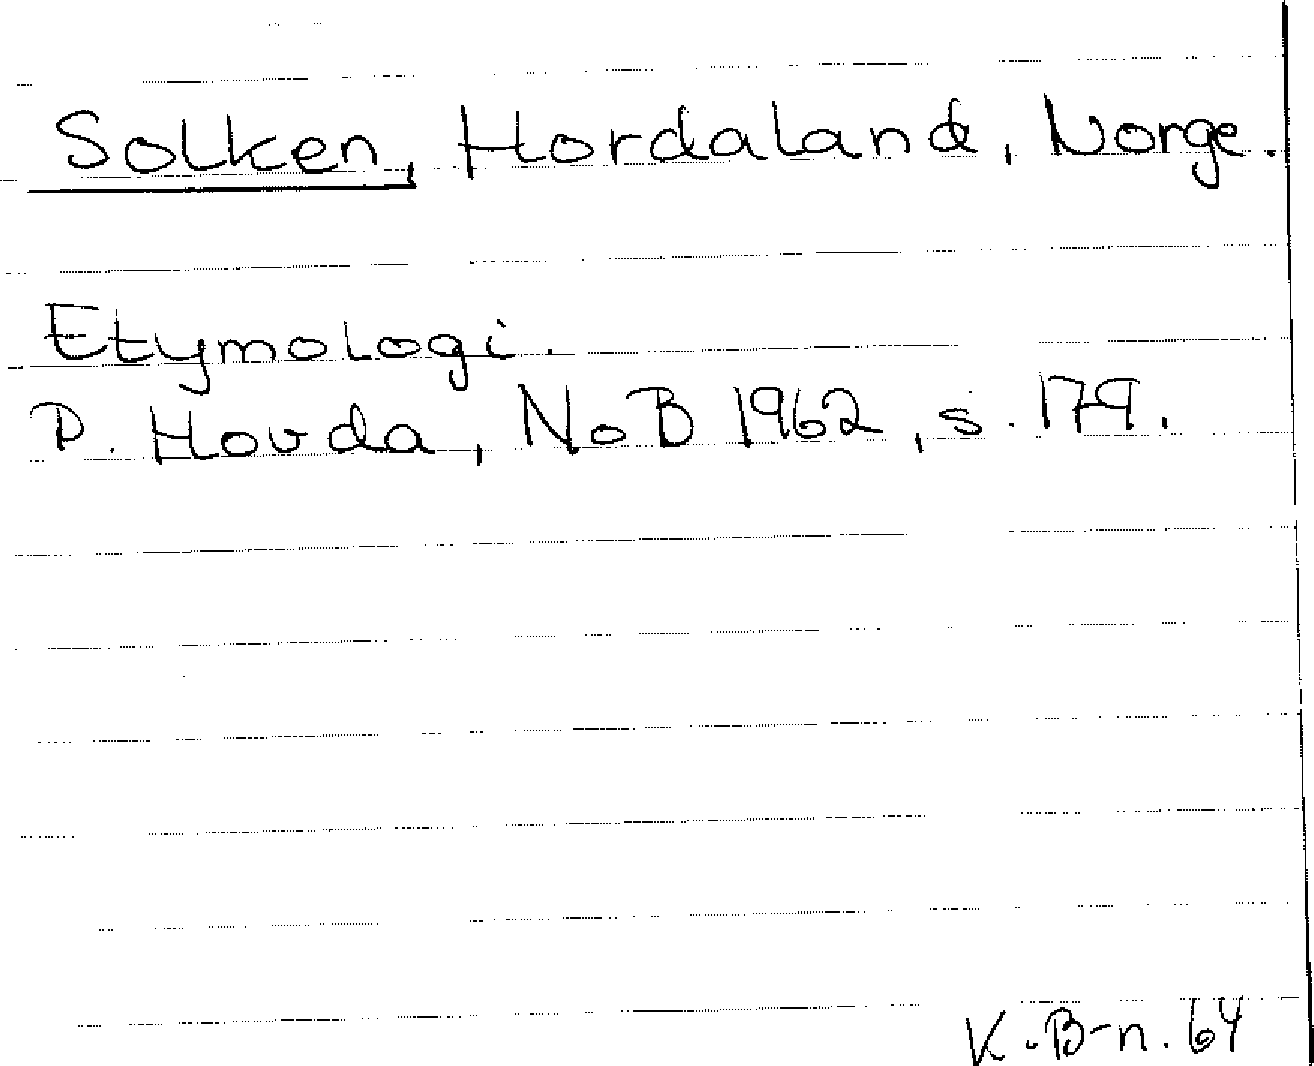 Solken, Hordaland, Norge.
Etymologi.
P. Hovda, NoB 1962, s. 179.
K.B-n. 64